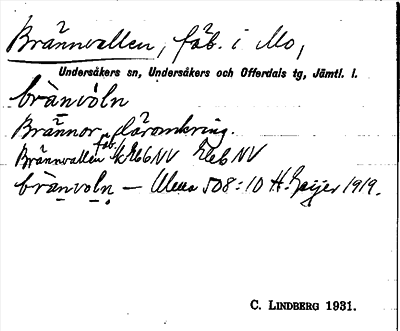 Brännvallen, fäb. i Mo,
Undersåkers sn, Undersåkers och Offerdals tg, Jämtl. l.
brànvòln
Brännor däromkring.
Brännvallen fäb. k E6NV
brànvòln — Ulleua 508:10 H. Geijer 1919.
C. LINDBERG 1931.